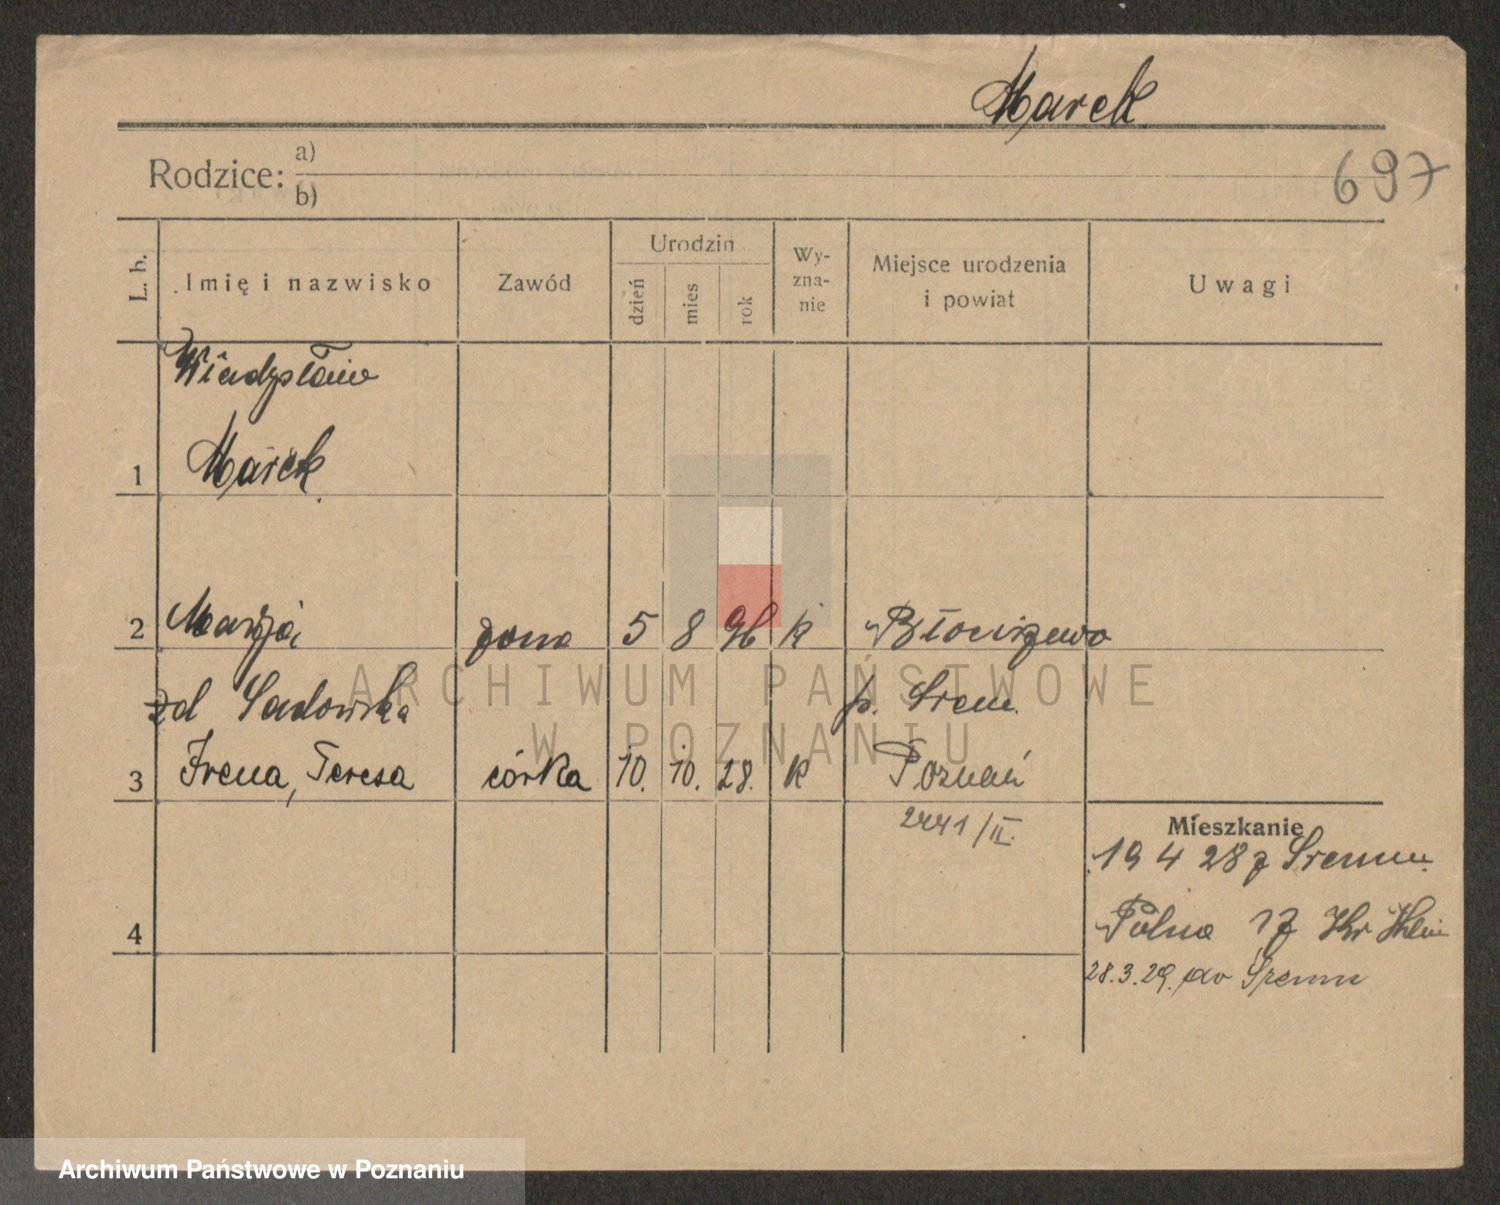 Marek
697
Rodzice: a)
b)
L. b.
Imię i nazwisko
Zawód
Urodzin
dzień
mies
rok
Wy-
zna-
nie
Miejsce urodzenia
i powiat
Uwagi
Władysław
1 Marek
2 Marja żona 5 8 96 k Błociszewo
zd Sadowska p. Śrem.
3 Irena, Teresa córka 10. 10. 28. k Poznań
2441/II.
Mieszkanie
19 4 28 z Śremu.
Polna 17
28.3.29. do Śremu
4
ARCHIWUM PAŃSTWOWE
W POZNANIU
Archiwum Państwowe w Poznaniu